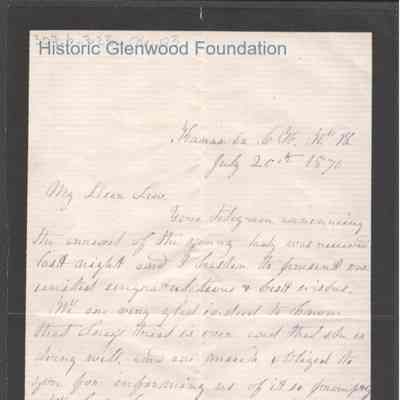 Historic Glenwood Foundation
Kanawha C.H., W. Va
July 20th 1870
My Dear Sir,
Your Telegram announcing
the arrival of the young lady was received
last night and I hasten to present our
united congratulations & best wishes.
We are very glad indeed to know
that trial is over and that she is
doing well, and are much obliged to
you for informing us of it so promptly